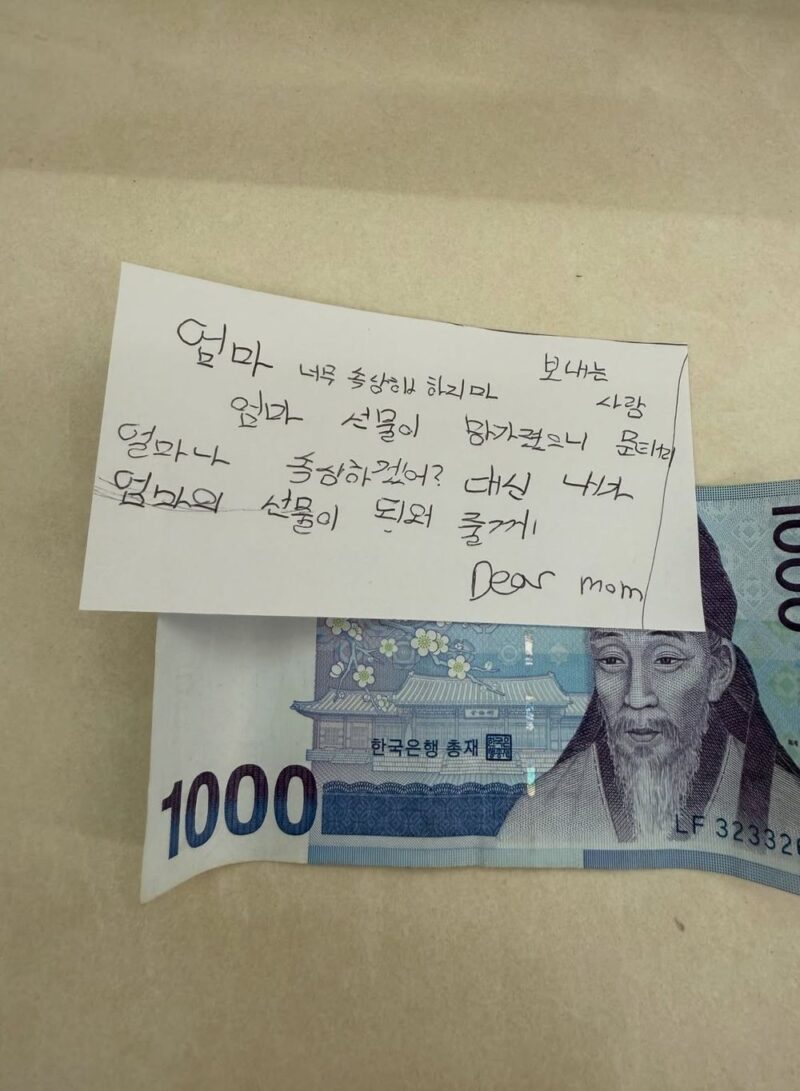 엄마 너무 속상해 하지마
보내는
사람
엄마 선물이 망가졌으니
얼마나 속상하겠어? 대신 내가
엄마의 선물이 되와 줄께
Dear mom
1000
한국은행 총재
1000
LF 32332